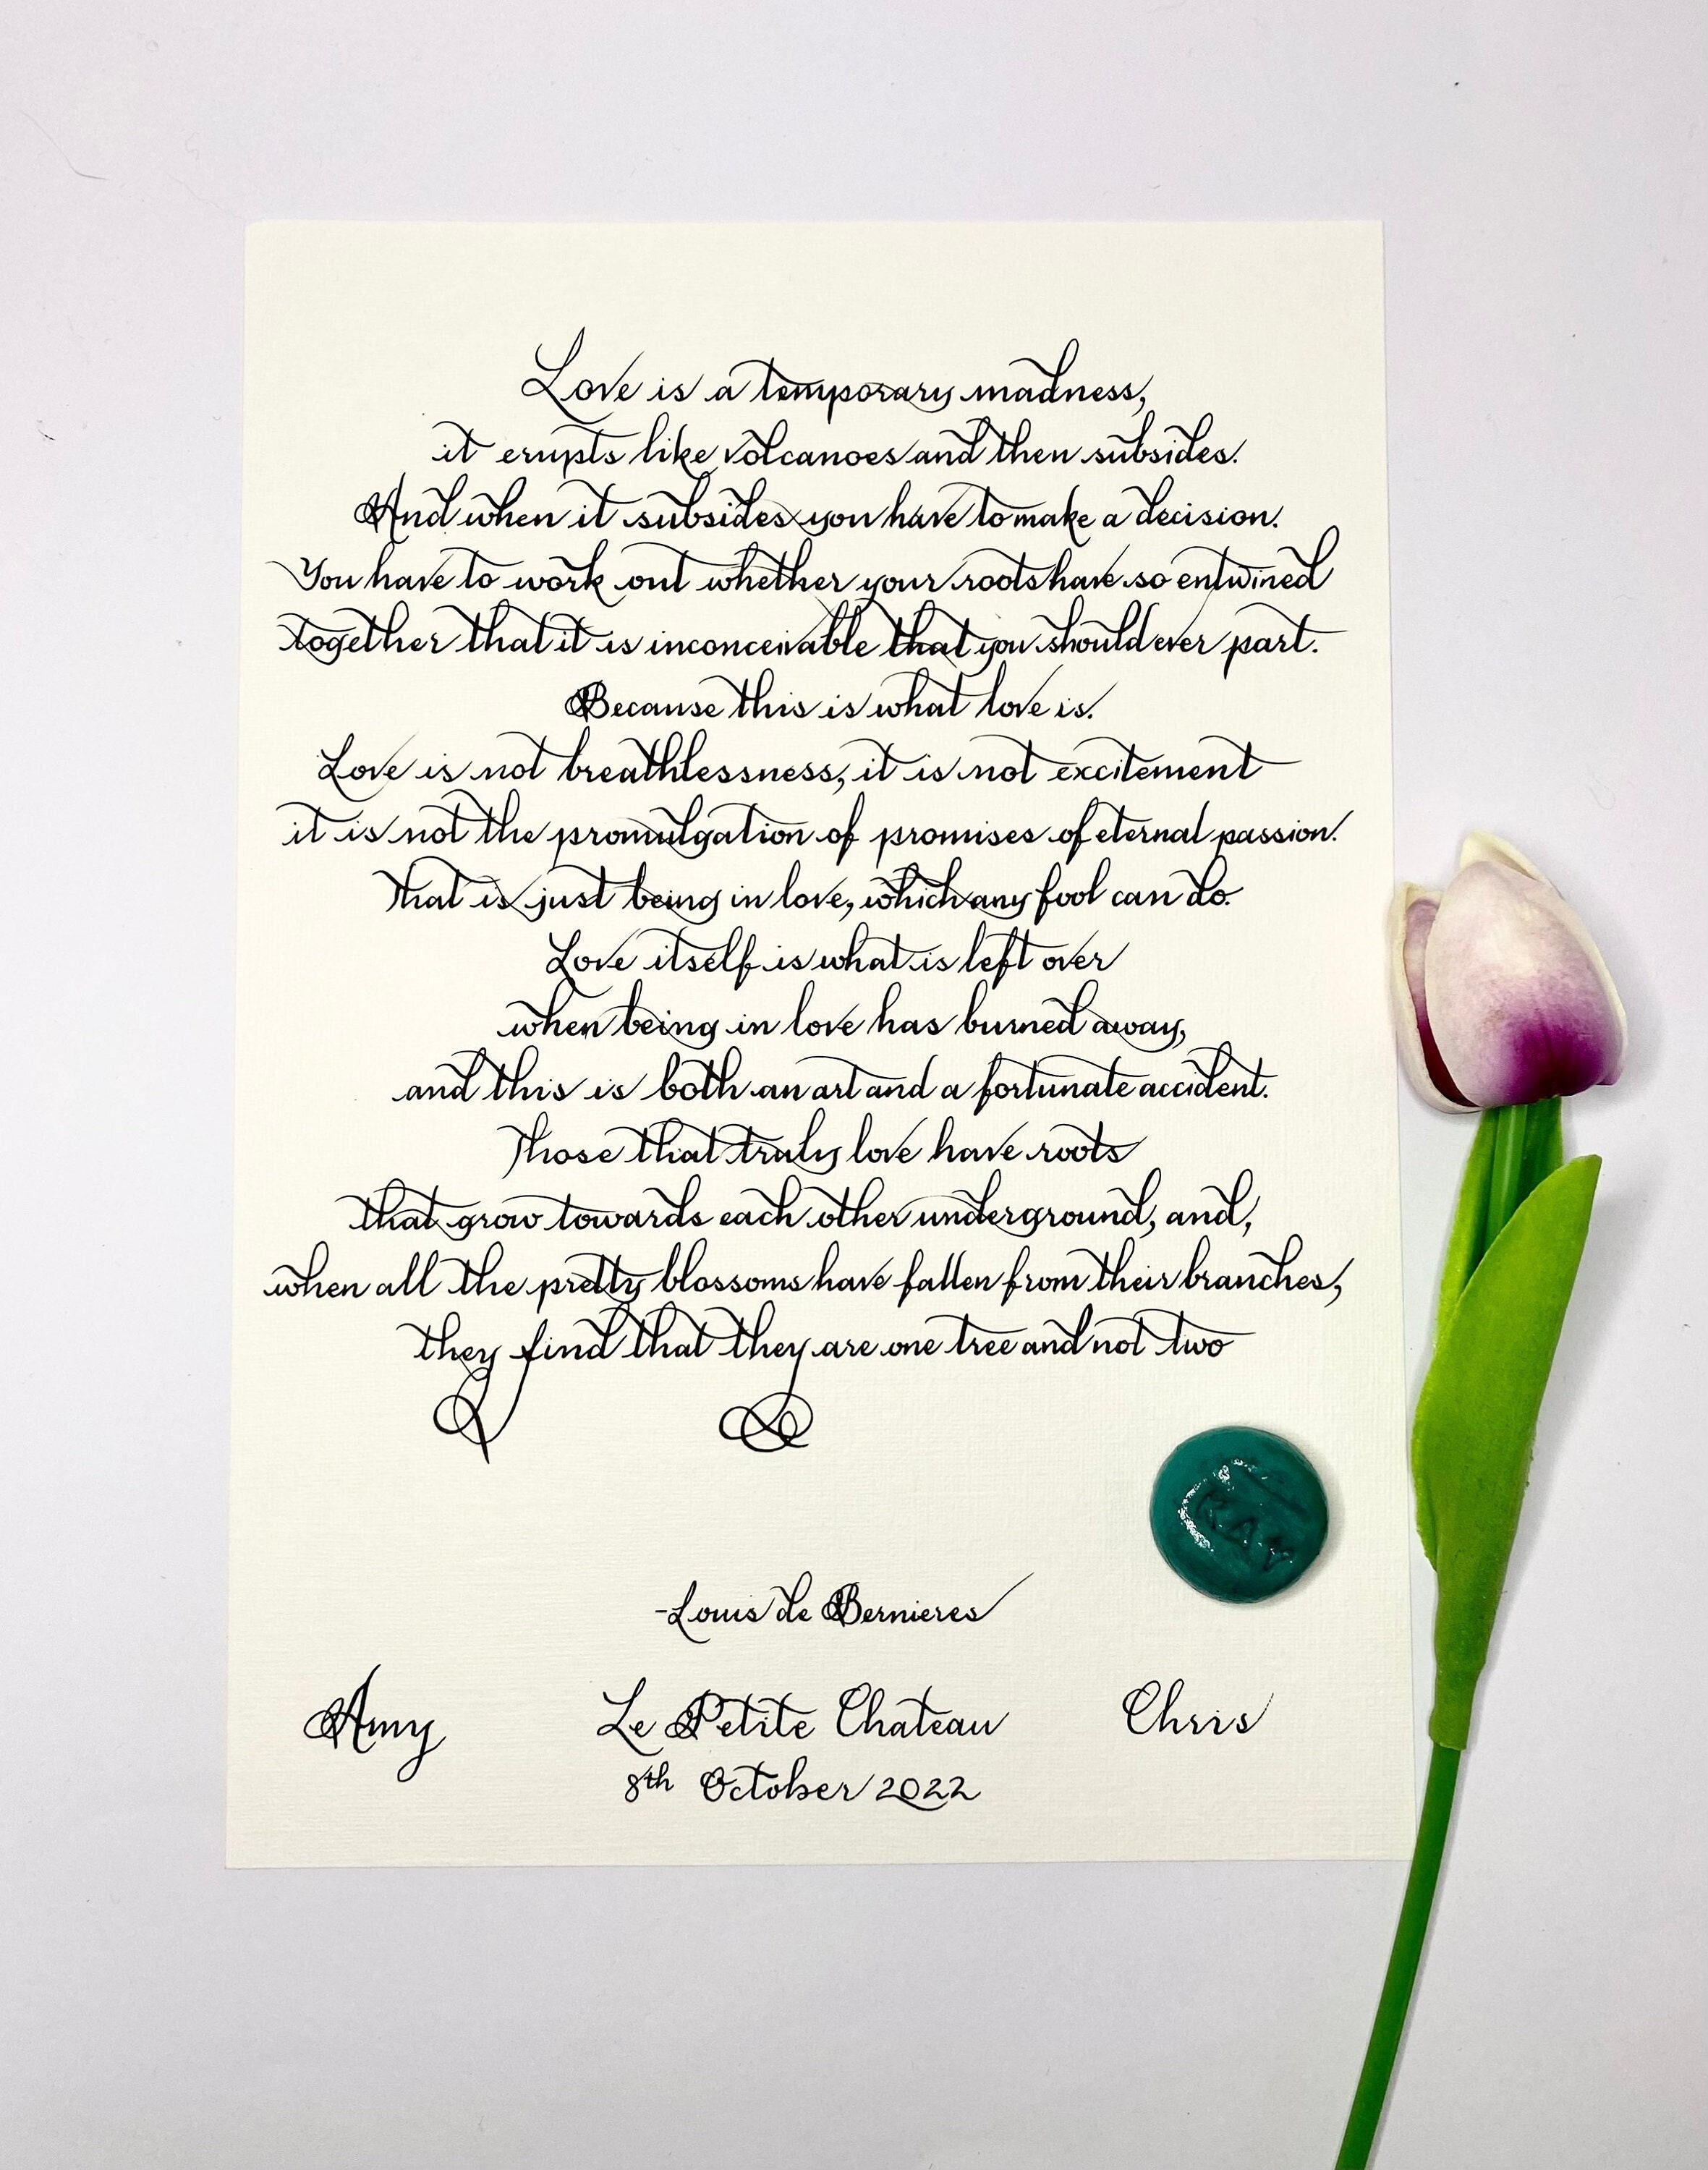 Love is a temporary madness,
it erupts like volcanoes and then subsides.
And when it subsides you have to make a decision.
You have to work out whether your roots have so entwined
together that it is inconceivable that you should ever part.
Because this is what love is.
Love is not breathlessness, it is not excitement
it is not the promulgation of promises of eternal passion.
That is just being in love, which any fool can do.
Love itself is what is left over
when being in love has burned away,
and this is both an art and a fortunate accident.
Those that truly love have roots
that grow towards each other underground, and,
when all the pretty blossoms have fallen from their branches,
they find that they are one tree and not two
-Louis de Bernieres
Amy Le Petite Chateau Chris
8th October 2022